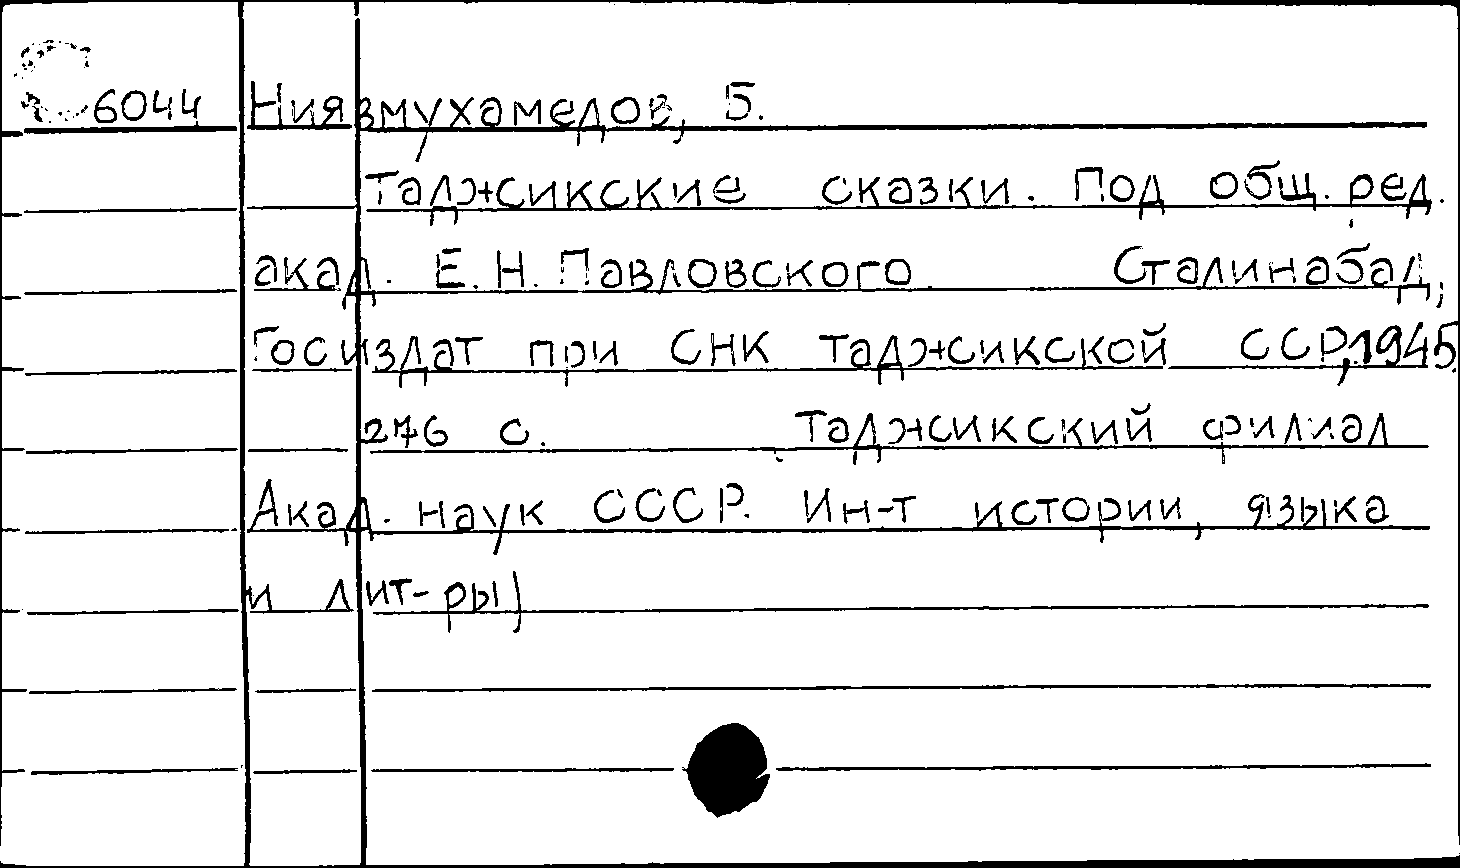 С 6044 Ниязмухамедов, Б.
Таджикские сказки. Под общ. ред.
акад. Е.Н. Павловского. Сталинабад,
Госиздат при СНК Таджикской ССР, 1945.
276 с. Таджикский филиал
Акад. наук СССР. Ин-т истории, языка
и лит-ры)